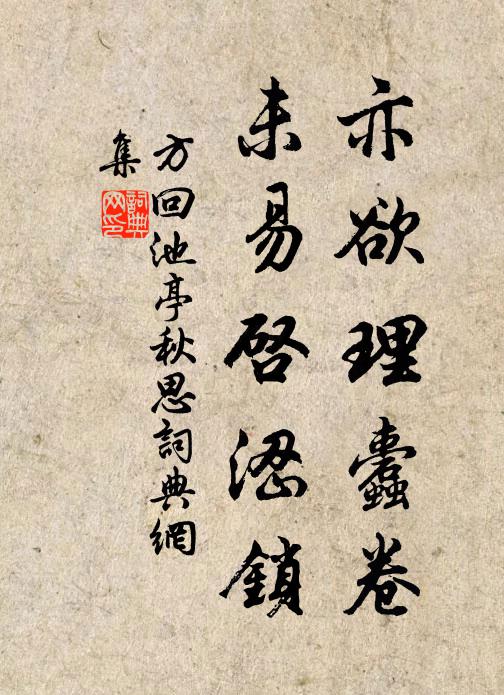 亦欲理蠹卷
未易啓涩鎖
方回池亭秋思詞典網
集
詞典
网印